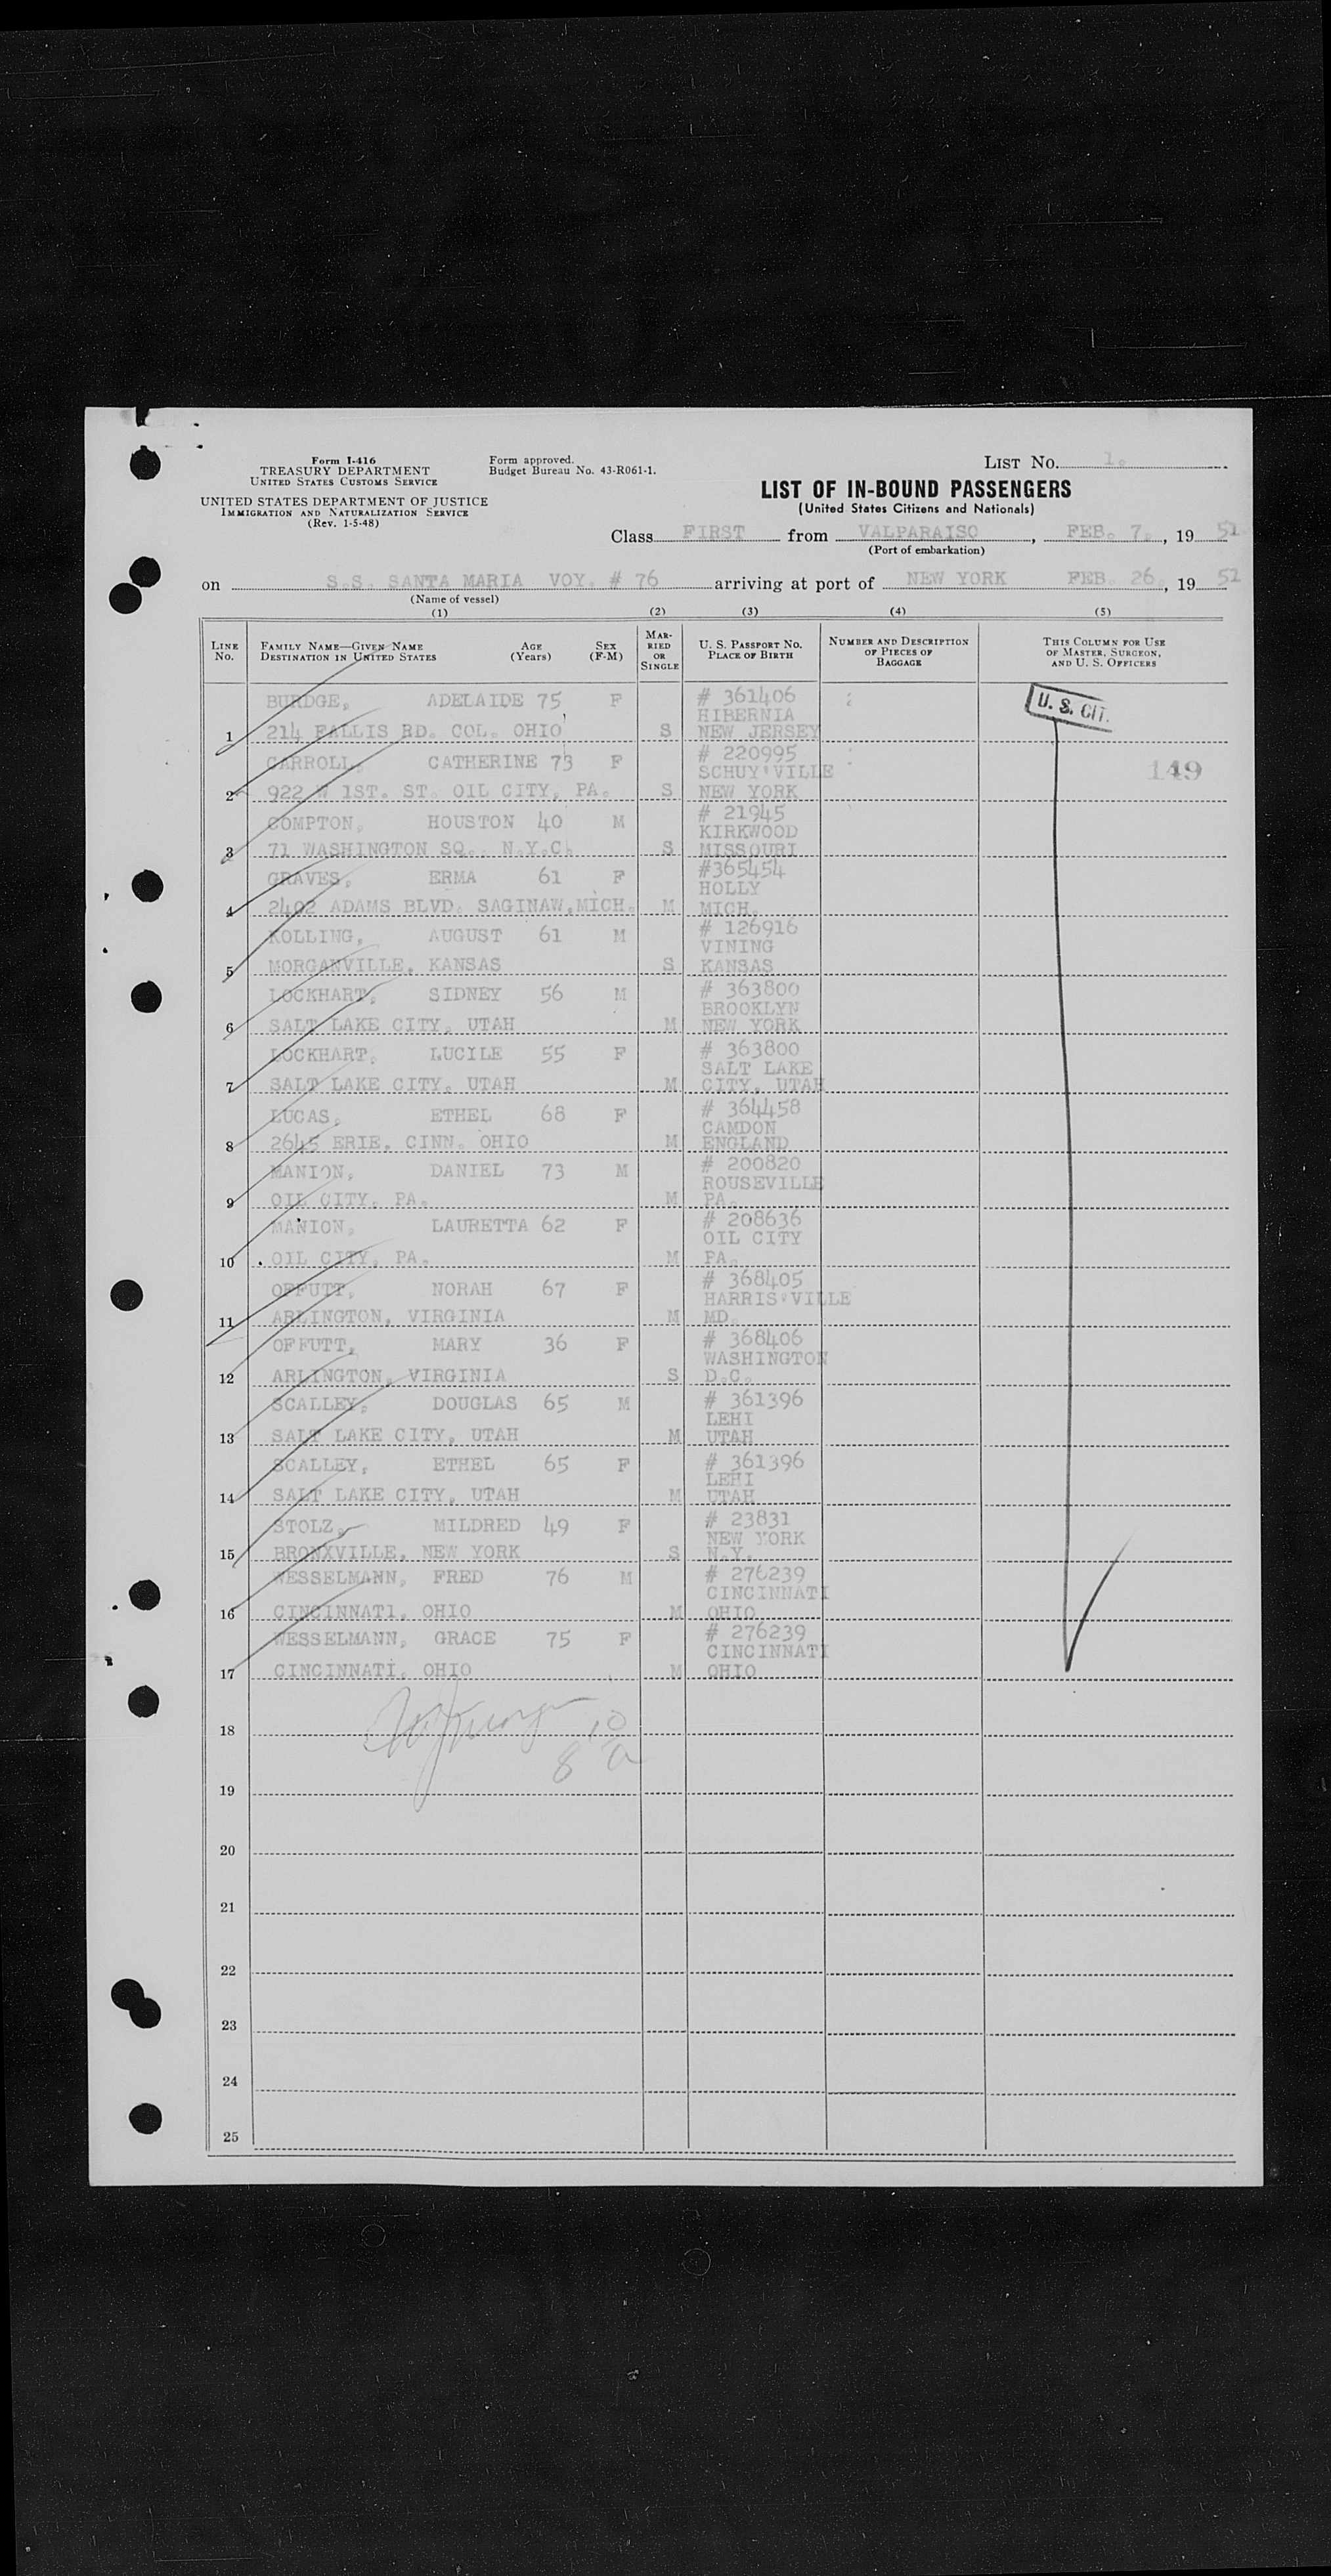 Form I-416
TREASURY DEPARTMENT
UNITED STATES CUSTOMS SERVICE
UNITED STATES DEPARTMENT OF JUSTICE
IMMIGRATION AND NATURALIZATION SERVICE
(Rev. 1-5-48)
Form approved.
Budget Bureau No. 43-R061-1.
LIST NO. 1.
LIST OF IN-BOUND PASSENGERS
(United States Citizens and Nationals)
Class FIRST from VALPARAISO, FEB. 7, 19 51
(Port of embarkation)
on S.S. SANTA MARIA VOY. # 76 arriving at port of NEW YORK FEB. 26, 19 51
(Name of vessel)
(1) (2) (3) (4) (5)
LINE NO. FAMILY NAME—GIVEN NAME DESTINATION IN UNITED STATES AGE (Years) SEX (F-M) MARRIED OR SINGLE U. S. PASSPORT NO. PLACE OF BIRTH NUMBER AND DESCRIPTION OF PIECES OF BAGGAGE THIS COLUMN FOR USE OF MASTER, SURGEON, AND U. S. OFFICERS
BURDGE, ADELAIDE 75 F # 361406 U. S. CIT.
HIBERNIA
1 214 FALLIS RD. COL. OHIO S NEW JERSEY
CARROLL, CATHERINE 73 F # 220995
SCHUY'VILLE 149
2 922 W 1ST. ST. OIL CITY, PA. S NEW YORK
COMPTON, HOUSTON 40 M # 21945
KIRKWOOD
3 71 WASHINGTON SQ., N.Y.C. S MISSOURI
GRAVES, ERMA 61 F #365454
HOLLY
4 2402 ADAMS BLVD. SAGINAW, MICH. M MICH.
KOLLING, AUGUST 61 M # 126916
VINING
5 MORGANVILLE, KANSAS S KANSAS
LOCKHART, SIDNEY 56 M # 363800
BROOKLYN
6 SALT LAKE CITY, UTAH M NEW YORK
LOCKHART, LUCILE 55 F # 363800
SALT LAKE
7 SALT LAKE CITY, UTAH M CITY, UTAH
LUCAS, ETHEL 68 F # 364458
CAMDON
8 2645 ERIE, CINN. OHIO M ENGLAND
MANION, DANIEL 73 M # 200820
ROUSEVILLE
9 OIL CITY, PA. M PA.
MANION, LAURETTA 62 F # 208636
OIL CITY
10 OIL CITY, PA. M PA.
OFFUTT, NORAH 67 F # 368405
HARRIS'VILLE
11 ARLINGTON, VIRGINIA M MD.
OFFUTT, MARY 36 F # 368406
WASHINGTON
12 ARLINGTON, VIRGINIA S D.C.
SCALLEY, DOUGLAS 65 M # 361396
LEHI
13 SALT LAKE CITY, UTAH M UTAH
SCALLEY, ETHEL 65 F # 361396
LEHI
14 SALT LAKE CITY, UTAH M UTAH
STOLZ, MILDRED 49 F # 23831
NEW YORK
15 BRONXVILLE, NEW YORK S N.Y.
WESSELMANN, FRED 76 M # 276239
CINCINNATI
16 CINCINNATI, OHIO M OHIO
WESSELMANN, GRACE 75 F # 276239
CINCINNATI
17 CINCINNATI, OHIO M OHIO
18
19
20
21
22
23
24
25